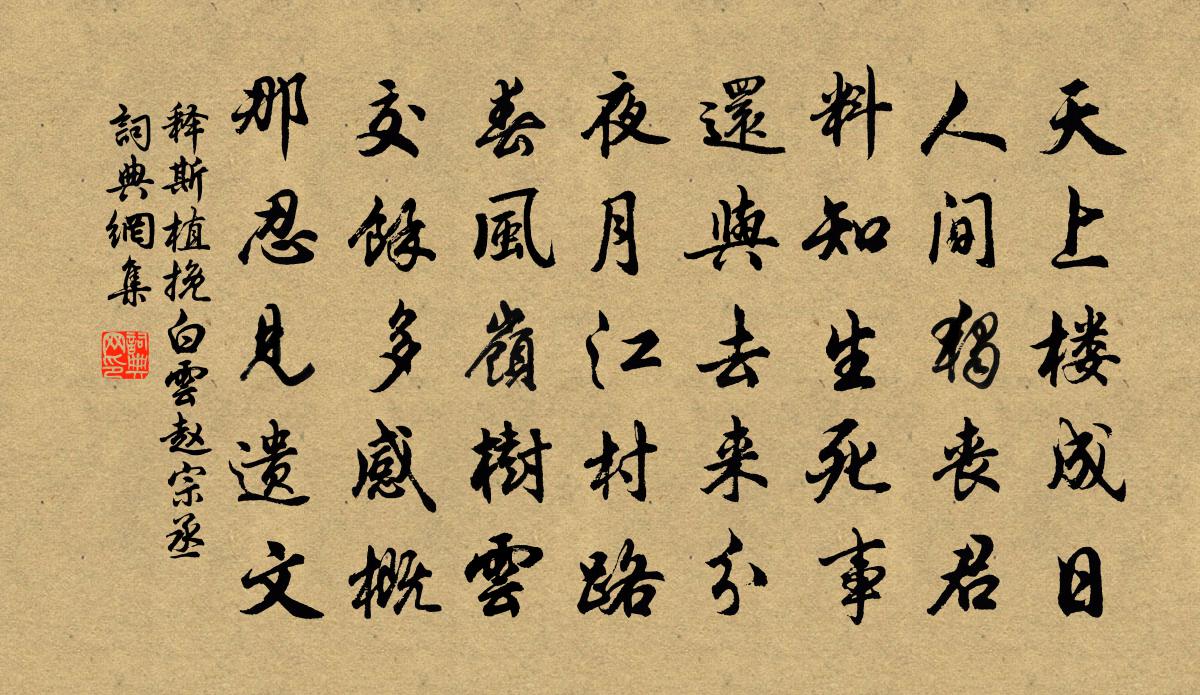 天上楼成日
人间獨丧君
料知生死事
還與去来分
夜月江村路
春風嶺樹雲
交餘多感概
那忍見遗文
释斯植挽白雲赵宗丞
詞典網集
詞典网印